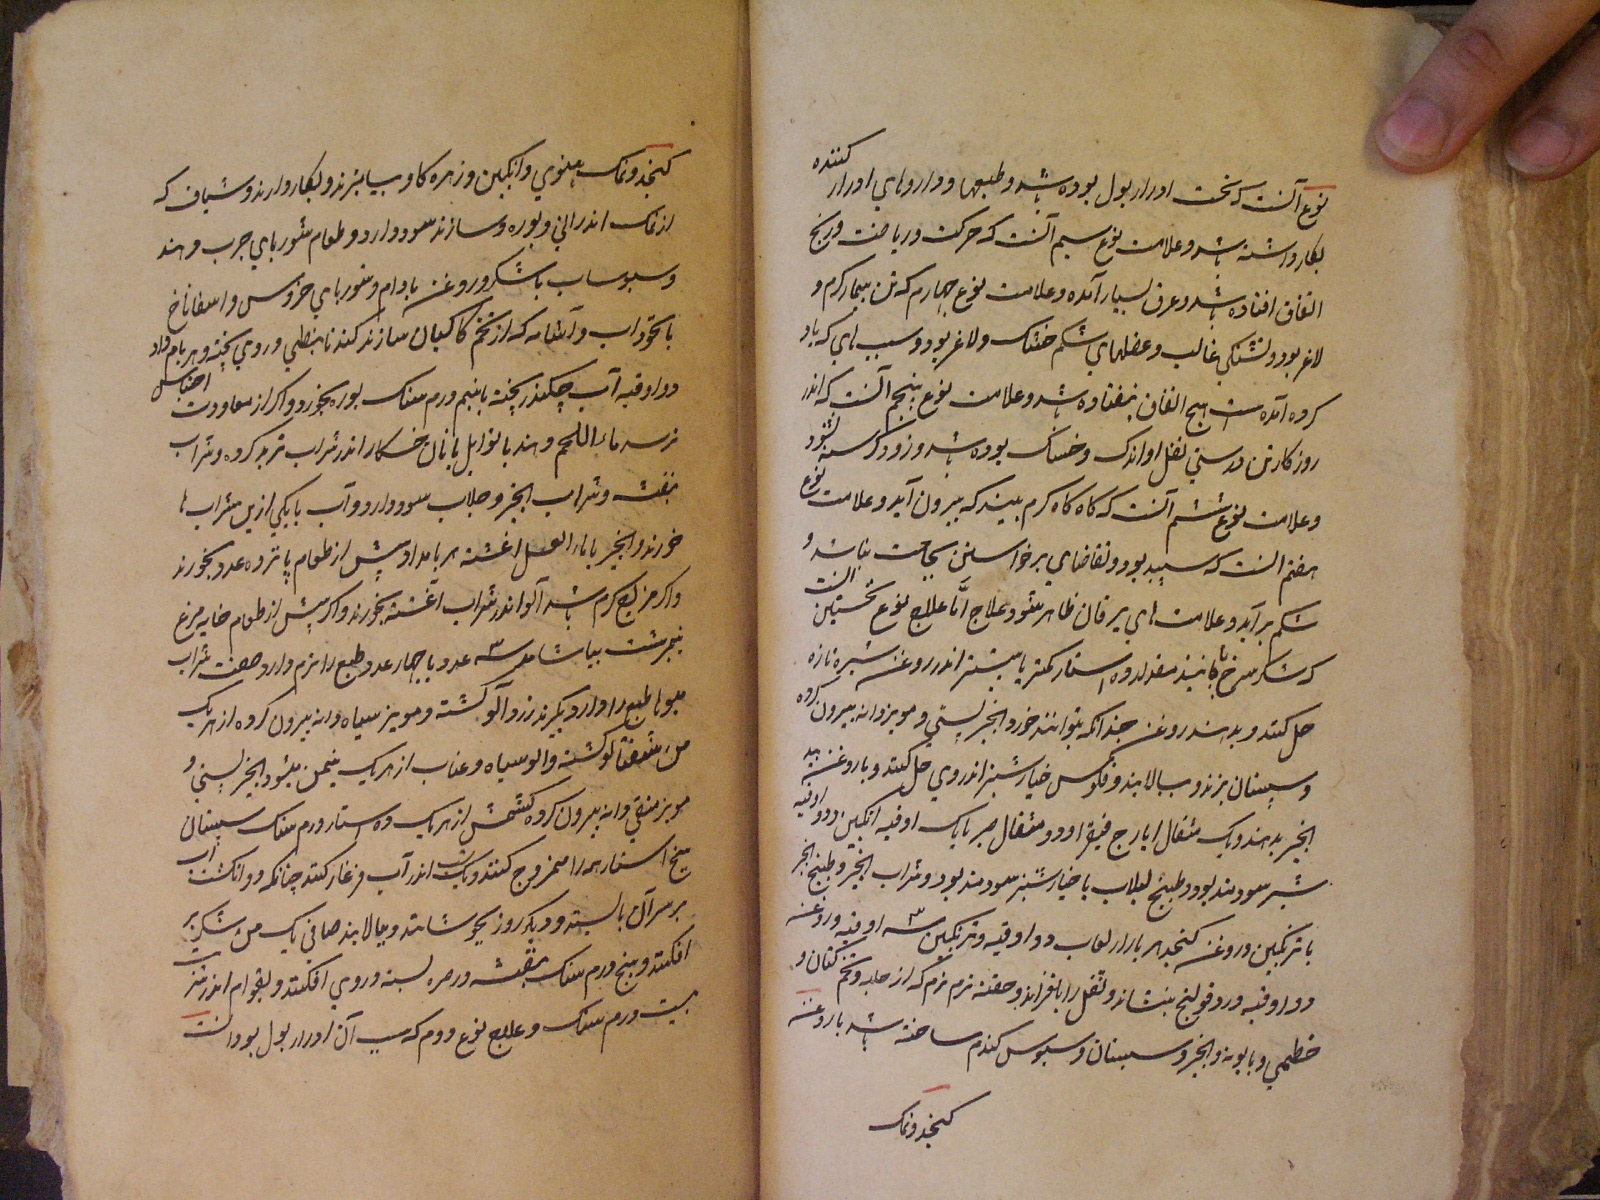 نوع آنست که نخست ادرار بول بوده باشد و طبیها و داروهای ادرار کننده
بکار داشته باشد و علامت نوع سیم آنست که حرکت و ریاضت و رنج
اتفاق افتاده باشد و عرق بسیار آمده و علامت نوع چهارم که تن بیمار گرم و
لاغر بود و تشنکی غالب و عضلهای شکم خشک و لاغر بود و سبب های که یاد
کرده آمده است هیچ اتفاق نیفتاده باشد و علامت نوع پنجم آنست که اندر
روزکار تن درستی ثفل او اندک و خشک بوده باشد و زود کرسنه نشود
و علامت نوع ششم آنست که کاه کاه کرم بیند که بیرون آید و علامت نوع
هفتم آنست که سپید بود و تقاضای برخواستن بحاجت نباشد و
شکم برآید و علامت های یرقان ظاهر شود علاج اما علاج نوع نخستین آنست
که شکر سرخ یا پانیذ مقدار ده استار کمتر یا بیشتر اندر روغن شیره تازه
حل کنند و بدهند روغن چندانکه بتوانند خورد و انجیر بستی و مویز دانه بیرون کرده
و سپستان بپزند و بپالایند و فلوس خیارشنبر اندر وی حل کنند و با روغن بید
انجیر بدهند و یک مثقال ایارج فیقرا و دو مثقال صبر با یک اوقیه انکبین و دو اوقیه
شیر سودمند بود و طبیخ لبلاب با خیارشنبر سودمند بود و شراب انجیر و طبیخ انجیر
با ترنکبین و روغن کنجد هر بار از لعاب دو اوقیه و ترنکبین سه اوقیه و روغن
دو اوقیه درد قولنج بنشاند و ثفل را بلغزاند و حقنه نرم نرم که از حلبه و تخم کتان و
خطمی و بابونه و انجیر و سپستان و سبوس کندم ساخته باشد با روغن
کنجد و نمک
کنجد و نمک هندوی و انکبین و زهره کاو بیامیزند و بکار دارند و شیاف که
از نمک اندرانی و بوره سازند سود دارد و طعام شورباهای چرب دهند
و سبوساب با شکر و روغن بادام و شوربای خروس و اسفاناخ
با نخوداب و آشامه که از تخم کاکیان سازند کند نابنطی در وی پخته و هر بامداد
دو اوقیه آب چکندر پخته با نیم درم سنک بوره بخورد و اکر از معاودت احتباس
ترسد ماء اللحم دهند با توابل یا نان خشکار اندر شراب ترید کرده و شراب
بنفشه و شراب انجیر و جلاب سود دارد و آب با یکی ازین شراب ها
خورند و انجیر با ماء العسل اغشته هر بامداد و پیش از طعام پانزده عدد بخورند
و اکر مزاج کرم باشد آلو اندر شراب آغشته بخورند و اکر پیش از طعام خایه مرغ
نیمرشت بیاشامد سه عدد یا چهار عدد طبع را نرم دارد صفت شراب
میوها طبع را وارد بکیرند زردآلو کشته و مویز سیاه دانه بیرون کرده از هر یک
من شفتالو کشته و الو سیاه و عناب از هر یک نیمن بشود انجیر بستی و
مویز منقی دانه بیرون کرده کشمش از هر یک ده استار درم سنک سپستان
پنج استار همه را ممزوج کنند و یک شب اندر آب فرغار کنند چنانکه دو انکشت آب
بر سر آن بایستد و دیکر روز بجوشانند و بپالایند صافی یک من شکر بر
افکنند و پنج درم سنک بنفشه در صره بسته در وی افکنند و بقوام آرند شربت
بیست درم سنک و علاج نوع دوم که سبب آن ادرار بول بود آنست